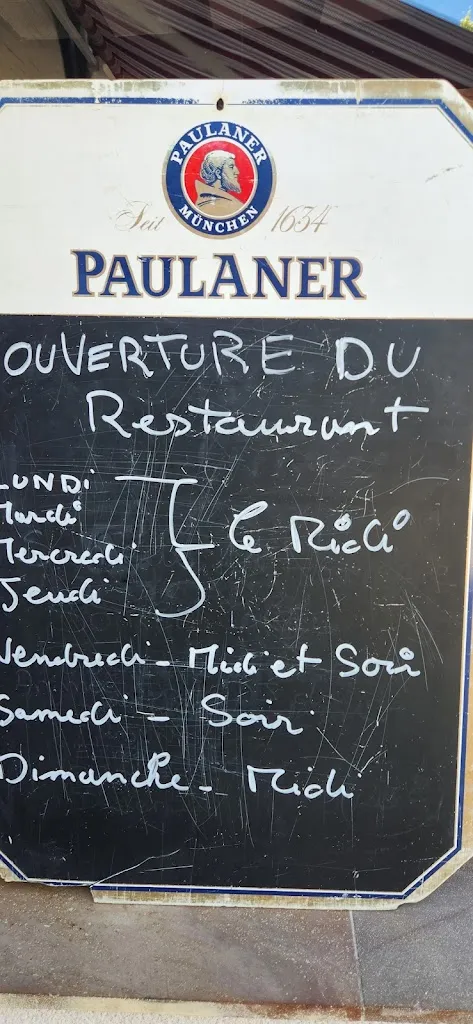 PAULANER
MÜNCHEN
Seit 1634
PAULANER
OUVERTURE DU
Restaurant
LUNDi
Mardi
Mercredi
Jeudi
le Midi
Vendredi - Midi et Soir
Samedi - Soir
Dimanche - Midi